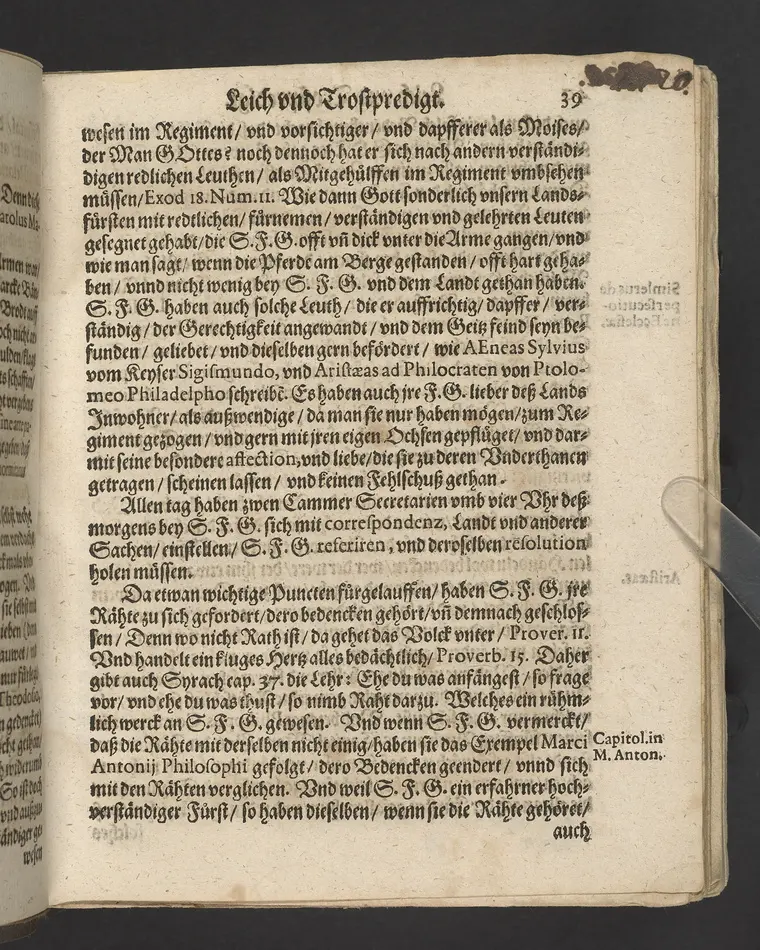 Leich vnd Trostpredigt. 39
wesen im Regiment/ vnd vorsichtiger/ vnd dapfferer als Moises/
der Man GOttes? noch dennoch hat er sich nach andern verständi-
digen redlichen Leuthen/ als Mitgehülffen im Regiment vmbsehen
müssen/Exod 18. Num. 11. Wie dann Gott sonderlich vnsern Lands-
fürsten mit redtlichen/ fürnemen/ verständigen vnd gelehrten Leuten
gesegnet gehabt/die S. F. G. offt vñ dick vnter die Arme gangen/vnd
wie man sagt/ wenn die Pferde am Berge gestanden/ offt hart geha-
ben/ vnnd nicht wenig bey S. F. G. vnd dem Landt gethan haben.
S. F. G. haben auch solche Leuth/ die er auffrichtig/ dapffer/ ver-
ständig/ der Gerechtigkeit angewandt/ vnd dem Geitz feind seyn be-
funden/ geliebet/ vnd dieselben gern befördert/ wie AEneas Sylvius
vom Keyser Sigismundo, vnd Aristæas ad Philocraten von Ptolo-
meo Philadelpho schreibē. Es haben auch jre F. G. lieber deß Lands
Inwohner/ als außwendige/ da man sie nur haben mögen/ zum Re-
giment gezogen/ vnd gern mit jren eigen Ochsen gepflüget/ vnd dar-
mit seine besondere affection, vnd liebe/die sie zu deren Vnderthanen
getragen/ scheinen lassen/ vnd keinen Fehlschuß gethan.
Allen tag haben zwen Cammer Secretarien vmb vier Vhr deß
morgens bey S. F. G. sich mit correspondenz, Landt vnd anderer
Sachen/ einstellen/ S. F. G. referiren, vnd deroselben resolution
holen müssen.
Da etwan wichtige Puncten fürgelauffen/ haben S. F. G. jre
Rähte zu sich gefordert/dero bedencken gehört/vñ demnach geschlos-
sen/ Denn wo nicht Rath ist/ da gehet das Volck vnter/ Prover. 11.
Vnd handelt ein kluges Hertz alles bedächtlich/ Proverb. 15. Daher
gibt auch Syrach cap. 37. die Lehr: Ehe du was anfängest/ so frage
vor/ vnd ehe du was thust/ so nimb Raht darzu. Welches ein rühm-
lich werck an S. F. G. gewesen. Vnd wenn S. F. G. vermerckt/
daß die Rähte mit derselben nicht einig/haben sie das Exempel Marci
Antonij Philosophi gefolgt/ dero Bedencken geendert/ vnnd sich
mit den Rähten verglichen. Vnd weil S. F. G. ein erfahrner hoch-
verständiger Fürst/ so haben dieselben/ wenn sie die Rähte gehöret/
auch
Capitol. in
M. Anton.